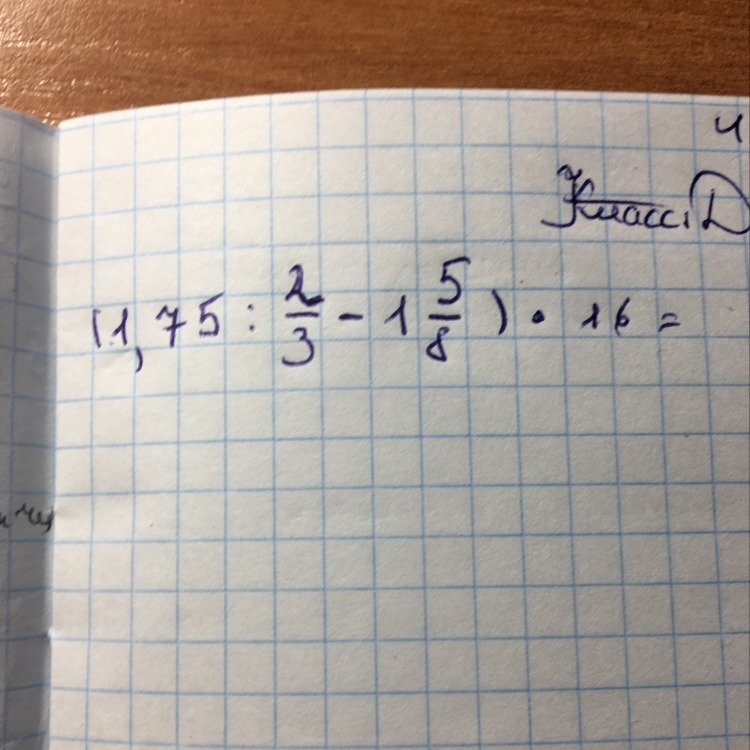 Класс. Д
(1,75 : 2/3 - 1 5/8) • 16 =